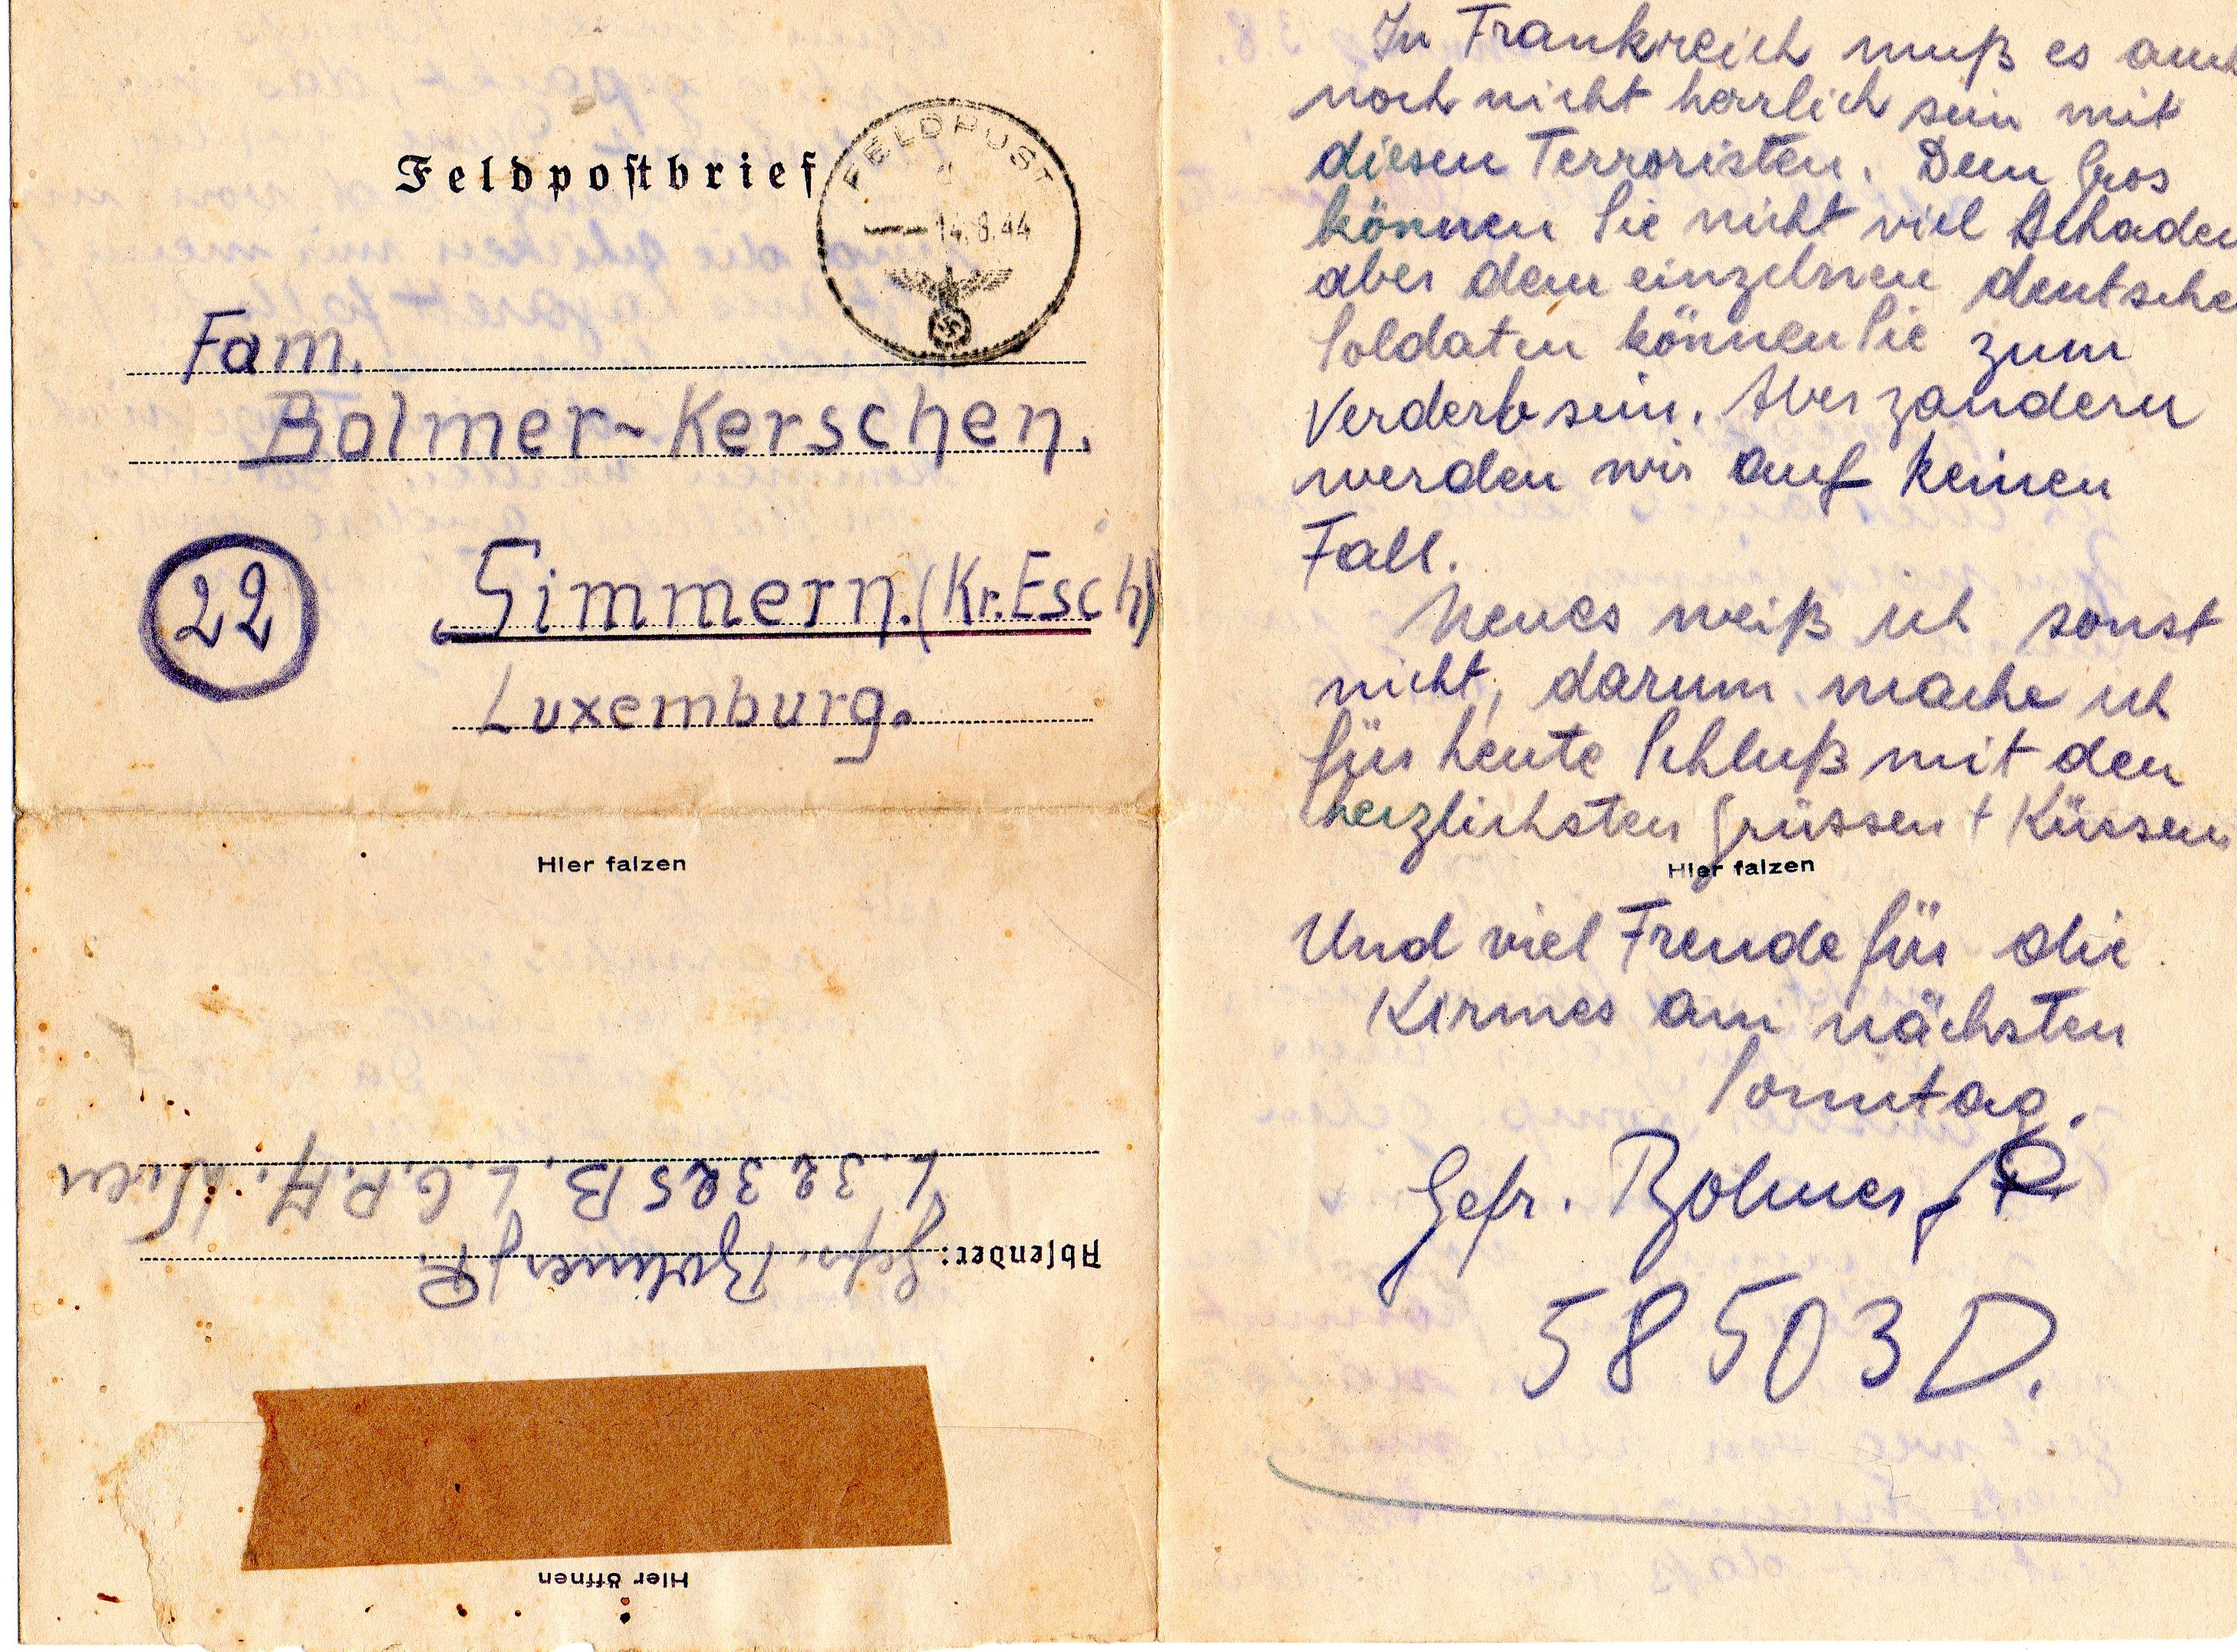 Feldpostbrief
FELDPOST
14.8.44
Fam.
Bolmer-Kerschen.
22
Simmern. (Kr. Esch)
Luxemburg.
Hier falzen
Absender: Gefr. Bolmer, P.
L. 32325 B, L.G.P.A. Wien
Hier öffnen
In Frankreich muß es auch
noch nicht herrlich sein mit
diesen Terroristen. Dem Gros
können Sie nicht viel Schaden
aber dem einzelnen deutsche
Soldaten können Sie zum
Verderb sein. Aber zaudern
werden wir auf keinen
Fall.
Neues weiß ich sonst
nicht, darum mache ich
für heute Schluß mit den
herzlichsten Grüssen + Küssen
Hier falzen
Und viel Freude für die
Kirmes am nächsten
Sonntag.
Gefr. Bolmer, P.
58503 D.